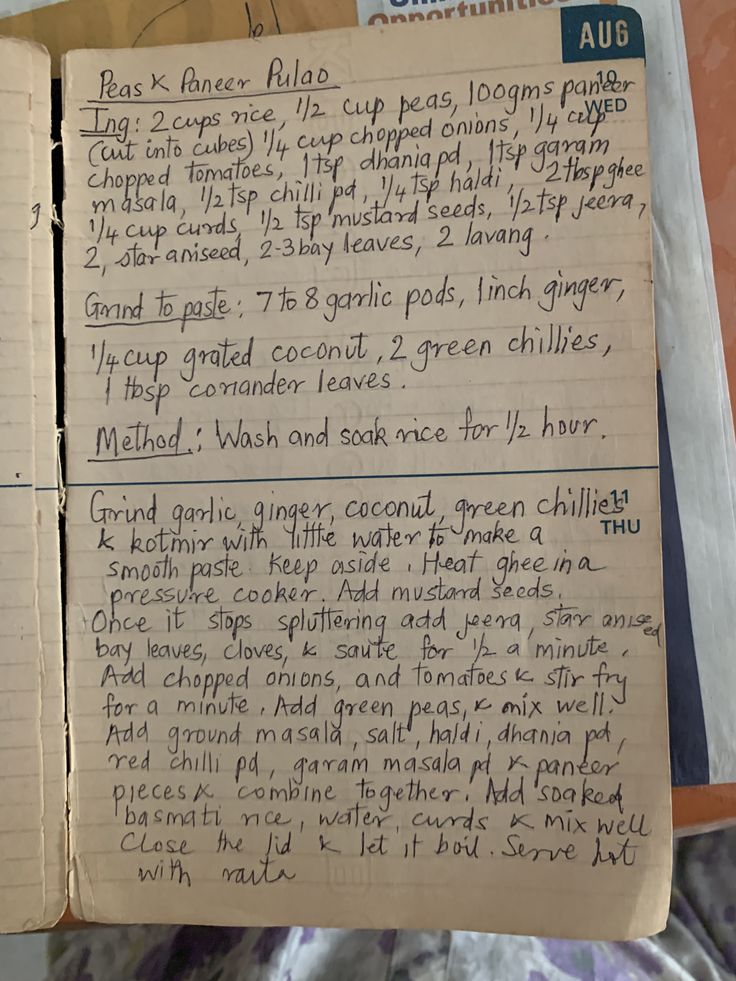 Opportunities
AUG
10
WED
Peas & Paneer Pulao
Ing: 2 cups rice, 1/2 cup peas, 100gms paneer
(cut into cubes) 1/4 cup chopped onions, 1/4 cup
chopped tomatoes, 1 tsp dhania pd, 1tsp garam
masala, 1/2 tsp chilli pd, 1/4 tsp haldi, 2 tbsp ghee
1/4 cup curds, 1/2 tsp mustard seeds, 1/2 tsp jeera,
2, star aniseed, 2-3 bay leaves, 2 lavang.
Grind to paste: 7 to 8 garlic pods, 1 inch ginger,
1/4 cup grated coconut, 2 green chillies,
1 tbsp coriander leaves.
Method.: Wash and soak rice for 1/2 hour.
11
THU
Grind garlic, ginger, coconut, green chillies
& kotmir with little water to make a
smooth paste. Keep aside. Heat ghee in a
pressure cooker. Add mustard seeds.
Once it stops spluttering add jeera, star aniseed
bay leaves, cloves, & saute for 1/2 a minute.
Add chopped onions, and tomatoes & stir fry
for a minute. Add green peas, & mix well.
Add ground masala, salt, haldi, dhania pd,
red chilli pd, garam masala pd & paneer
pieces & combine together. Add soaked
basmati rice, water, curds & mix well
Close the lid & let it boil. Serve hot
with raita